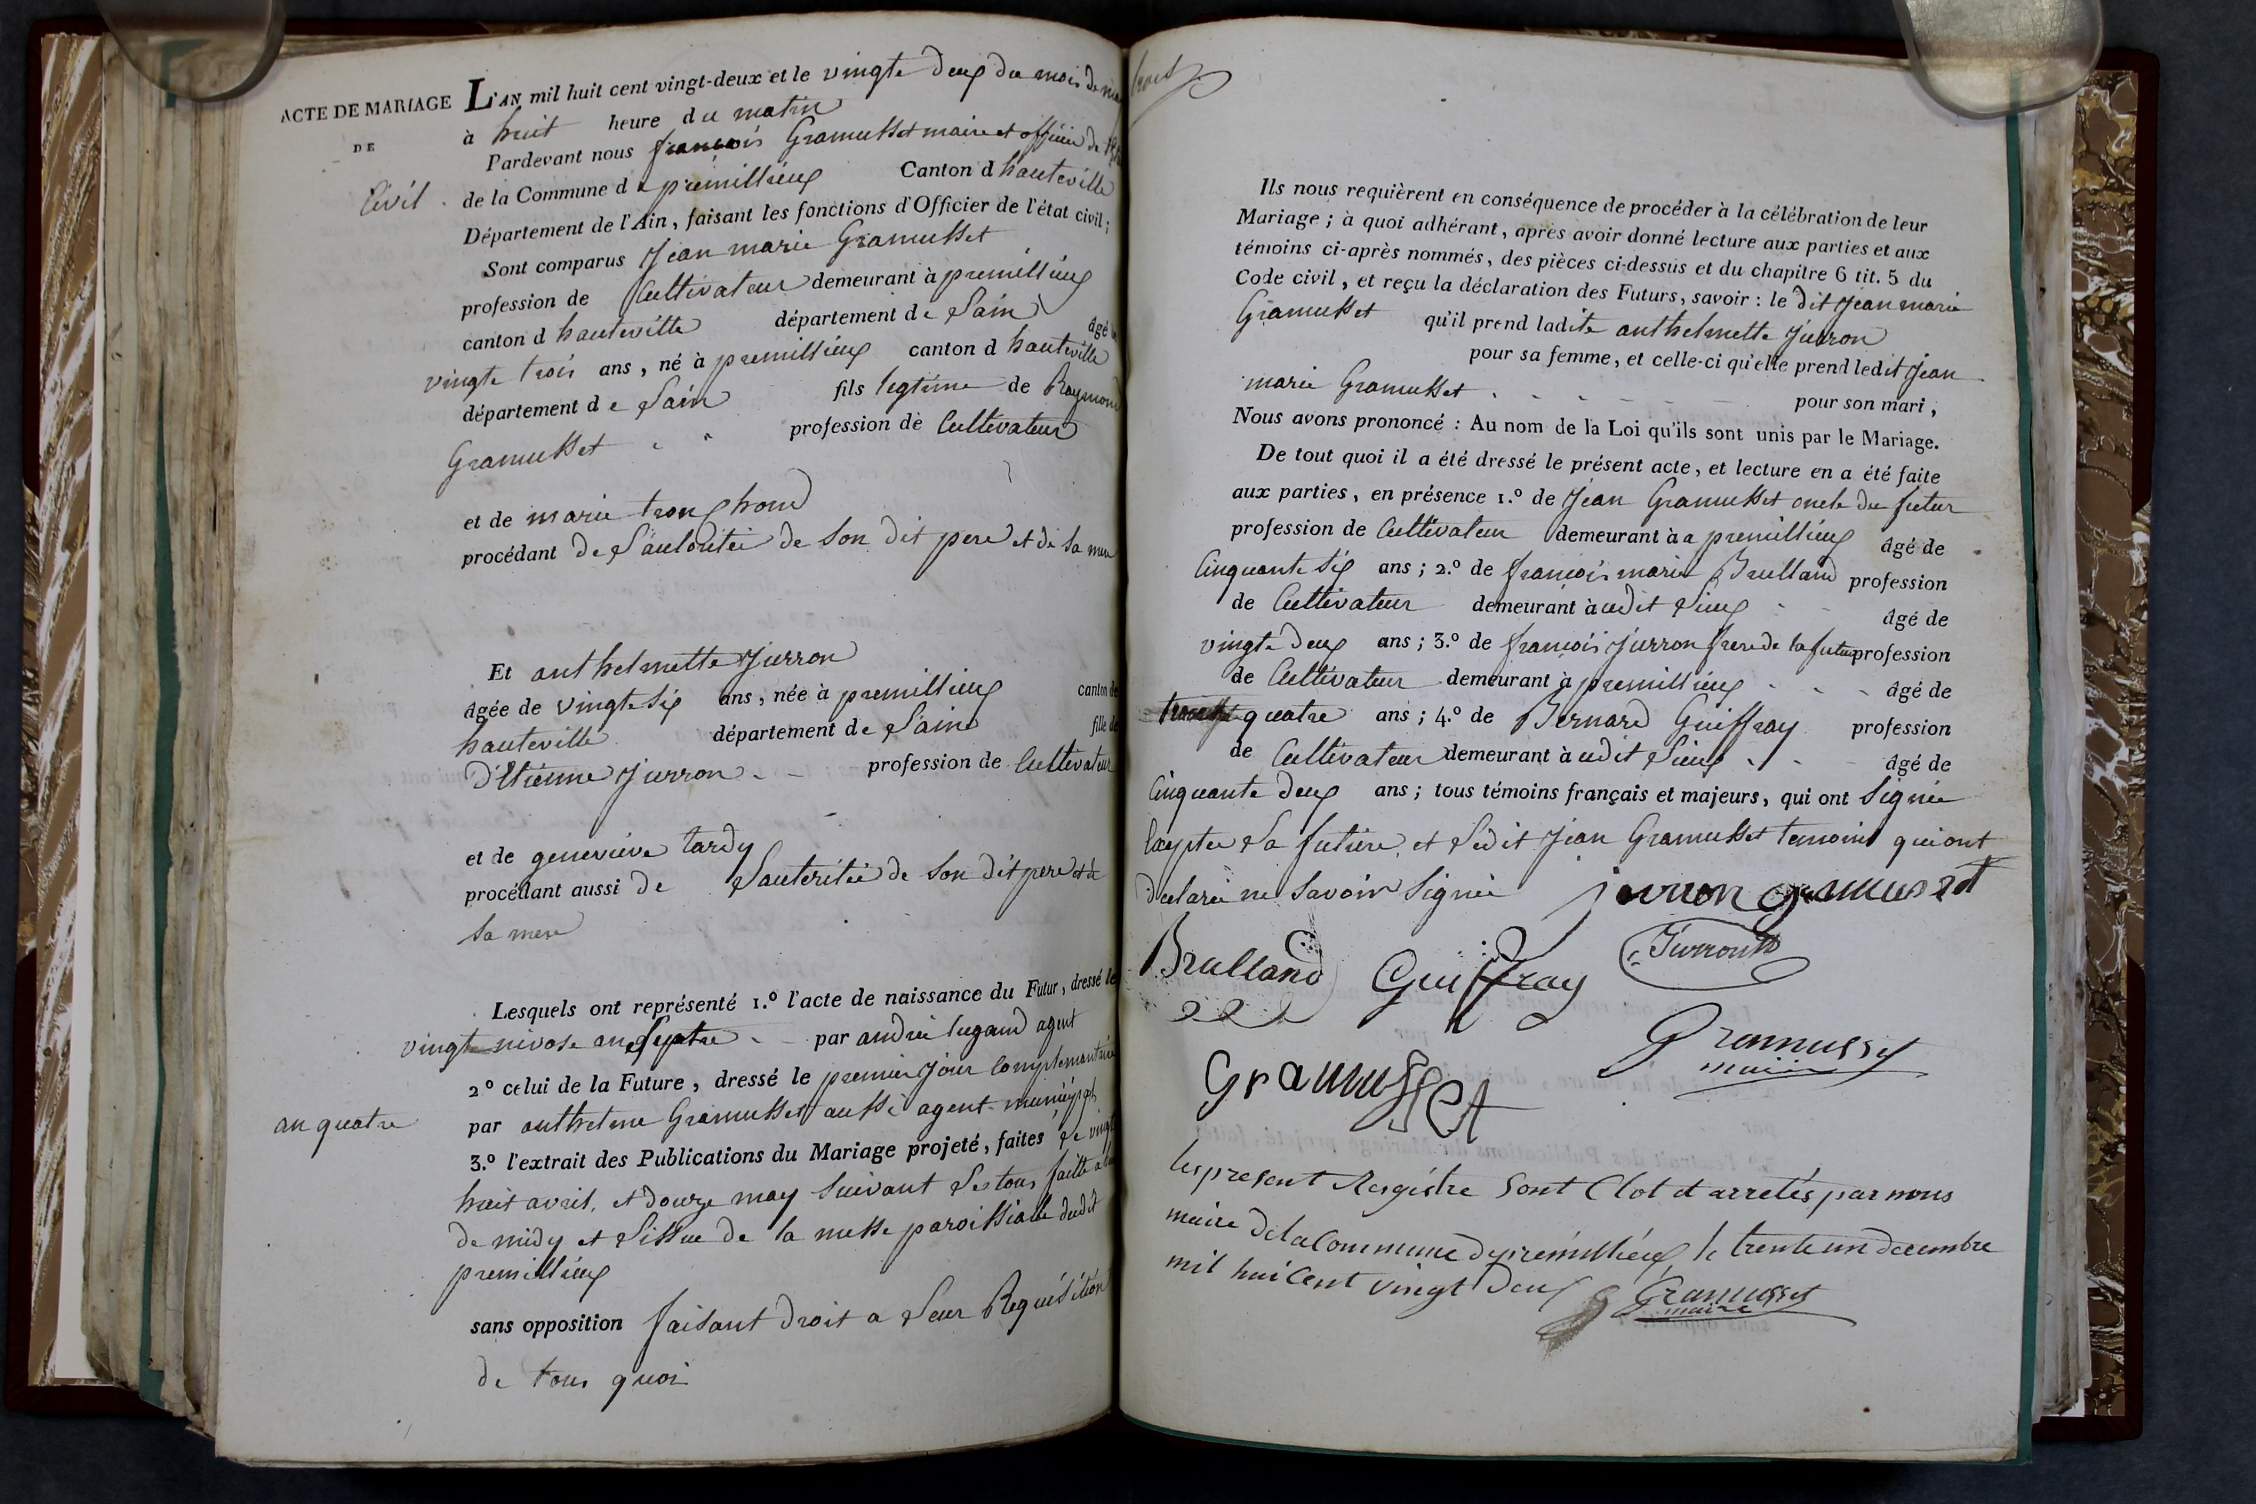 ACTE DE MARIAGE L'AN mil huit cent vingt-deux et le vingte deux du mois de
DE à huit heure du matin
Pardevant nous françois Gramusset maire et officier de
Civil . de la Commune de premillieux Canton d hauteville
Département de l'Ain, faisant les fonctions d'Officier de l'état civil;
Sont comparus Jean marie Gramusset
profession de Cultivateur demeurant à premillieux
canton d hauteville département de Lain âgé
vingte trois ans, né à premillieux canton d hauteville
département de Lain fils legtime de Raymond
Gramusset profession de Cultivateur
et de marie tronchond
procédant de Lautoritée de son dit pere et de sa mere
Et anthelmette Jurron
âgée de vingte six ans, née à premillieux canton de
hauteville département de Laine fille de
d'Etienne Jurron profession de Cultivateur
et de genevieve tardy
procédant aussi de Lauteritée de son dit pere et de
sa mere
Lesquels ont représenté 1.º l'acte de naissance du Futur, dressé le
vingte nivose an septre par andré lugand agent
2º celui de la Future, dressé le premier jour Complemantaire
an quatre par anthelme Gramusset aussi agent municipal
3.º l'extrait des Publications du Mariage projeté, faites Le vingte
huit avril, et douze may suivant Les tous faitte a
de midy et Lissue de la messe paroissialle dudit
premillieux
sans opposition faisant droit a Leur Requisition
de tous quoi
Ils nous requièrent en conséquence de procéder à la célébration de leur
Mariage; à quoi adhérant, après avoir donné lecture aux parties et aux
témoins ci-après nommés, des pièces ci-dessus et du chapitre 6 tit. 5 du
Code civil, et reçu la déclaration des Futurs, savoir: le dit Jean marie
Gramusset qu'il prend ladite anthelmette Jurron
pour sa femme, et celle-ci qu'elle prend ledit Jean
marie Gramusset pour son mari,
Nous avons prononcé: Au nom de la Loi qu'ils sont unis par le Mariage.
De tout quoi il a été dressé le présent acte, et lecture en a été faite
aux parties, en présence 1.º de Jean Gramusset oncle du futur
profession de Cultivateur demeurant à a premillieux âgé de
Cinquante Six ans; 2.º de françois marie Brulland profession
de Cultivateur demeurant à udit Lieux âgé de
vingte deux ans; 3.º de françois Jurron frere de la future profession
de Cultivateur demeurant à premillieux âgé de
quatre ans; 4.º de Bernard Guiffray profession
de Cultivateur demeurant à udit Lieux âgé de
Cinquante deux ans; tous témoins français et majeurs, qui ont Signée
Excepter La future et Ledit Jean Gramusset temoins qui ont
declarée ne Savoir Signée jurron gramusset
Brulland Guiffray Jurront
Gramusset
maire
Gramusset
Les present Registre Sont Clot et arretés par nous
maire de la Commune de premillieux, le trente un decembre
mil huit Cent vingt deux Gramusset
maire